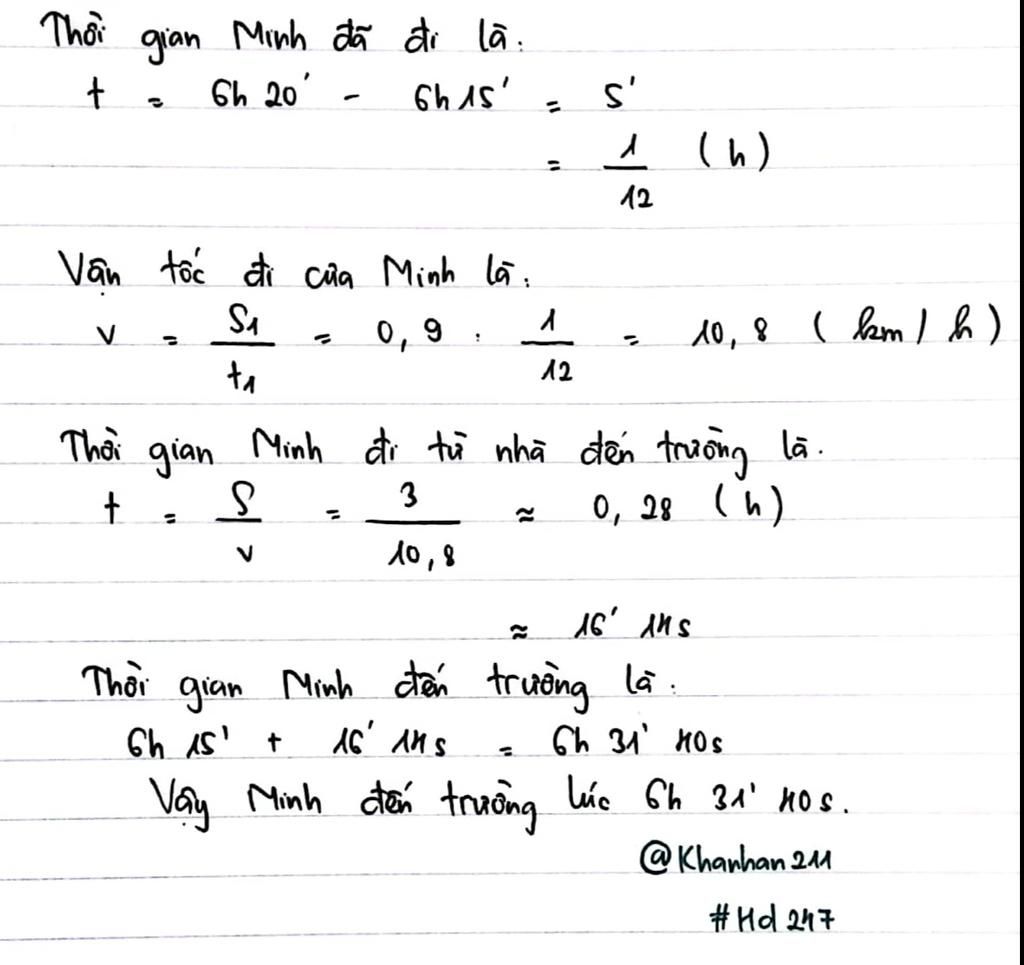 Thời gian Minh đã đi là:
t = 6h 20' - 6h 15' = 5'
= 1/12 (h)
Vận tốc đi của Minh là:
v = S1/t1 = 0,9 : 1/12 = 10,8 (km/h)
Thời gian Minh đi từ nhà đến trường là.
t = S/v = 3/10,8 ≈ 0,28 (h)
≈ 16' 14s
Thời gian Minh đến trường là:
6h 15' + 16' 14s = 6h 31' 40s
Vậy Minh đến trường lúc 6h 31' 40s.
@Khanhan211
#Hd247